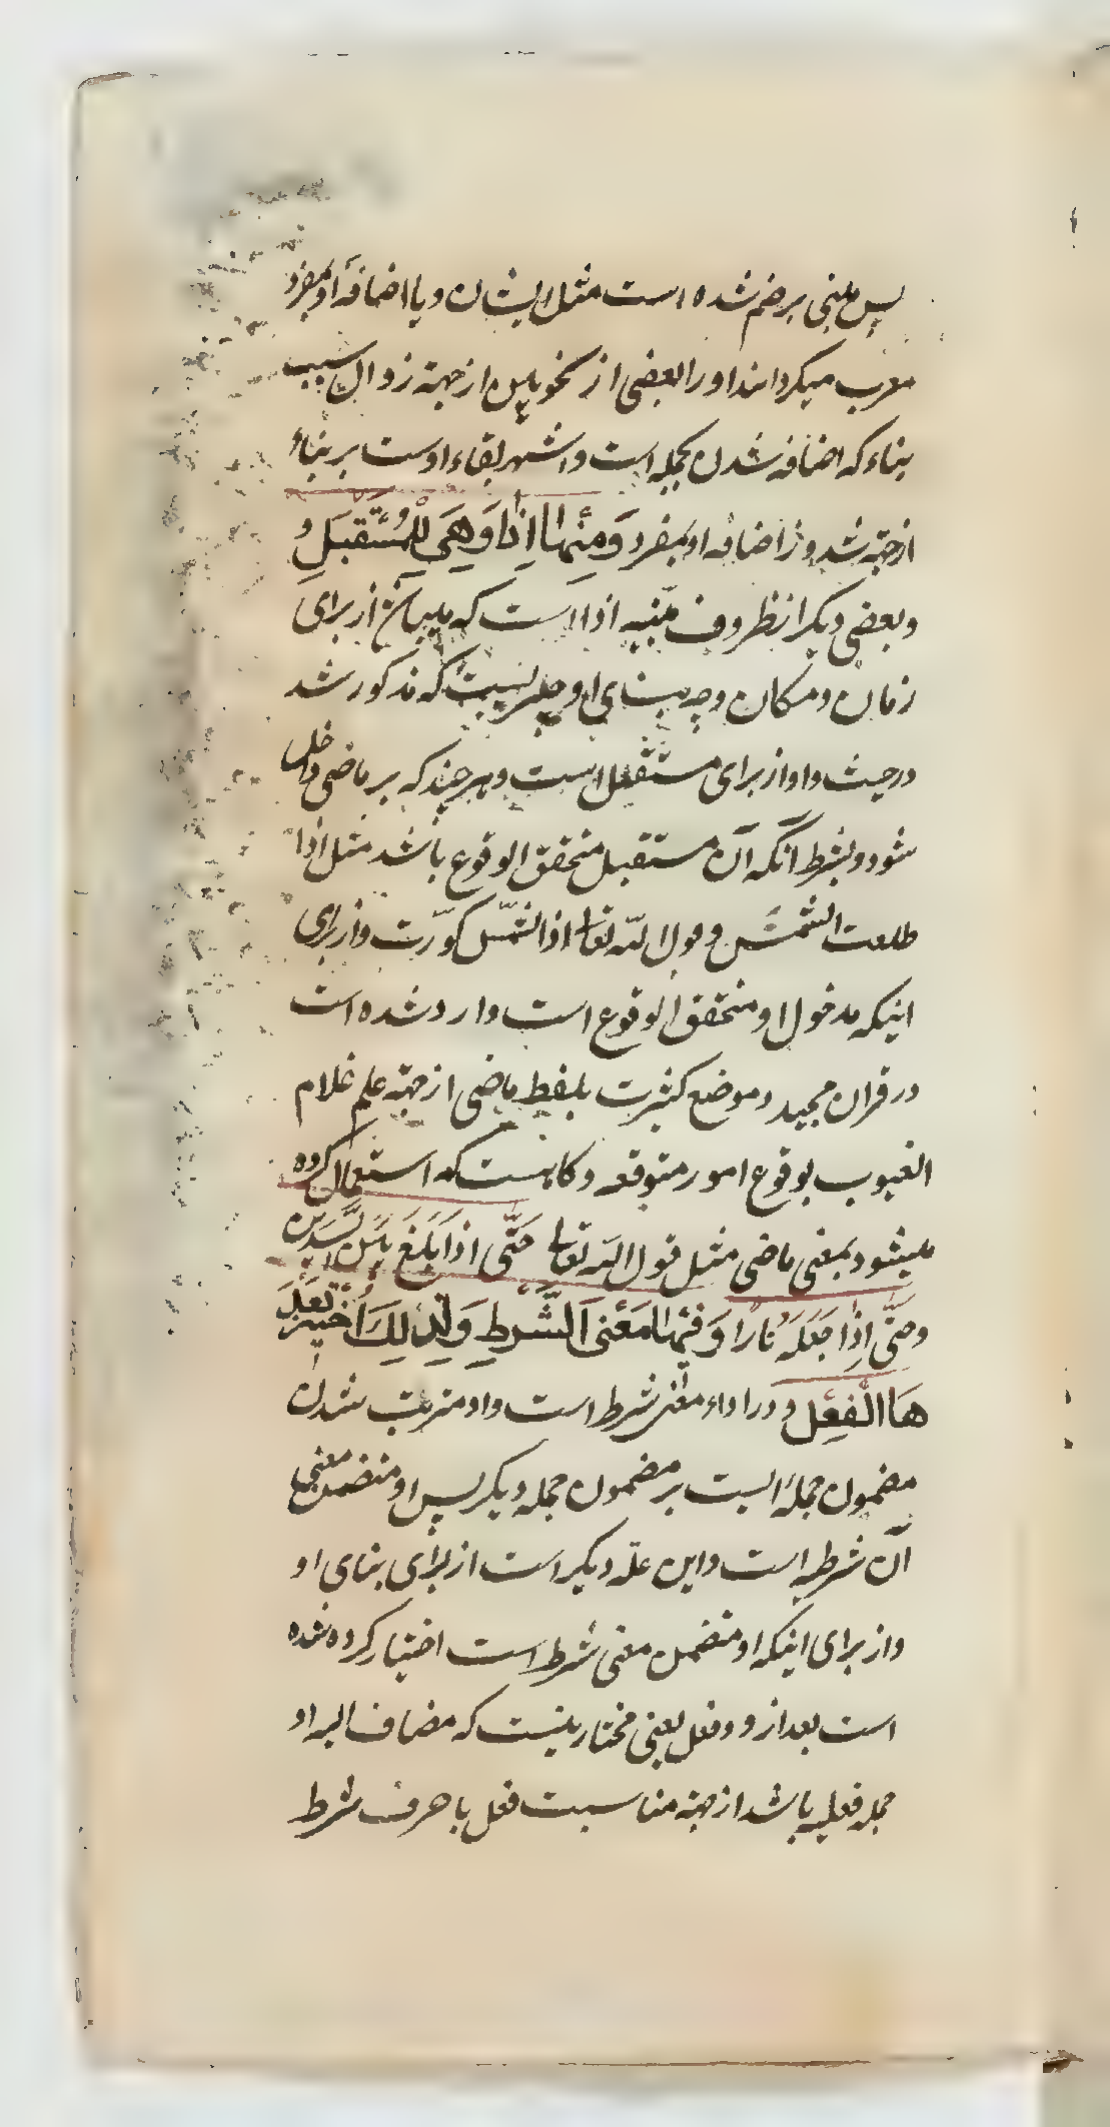 پس مبنی بر ضم شده است مثل ایشان و با اضافهٔ او بمفرد
معرب میگردانند او را بعضی از نحویین از جهة زوال سبب
بناء که اضافه شدن بجمله است و اشهر بقاء اوست بر بناء
از جهة شذوذ اضافه او بمفرد وَمِنْهَا اِذَا وَهِيَ لِلْمُسْتَقْبَلِ و
و بعضی دیگر از ظروف مبنیه اذا است که میباشد از برای
زمان و مکان و جهة بنای او چیزیست که مذکور شد
در حیث و او از برای مستقبل است و هر چند که بر ماضی داخل
شود و بشرط آنکه آن مستقبل متحقق الوقوع باشد مثل اذا
طلعت الشمس و قول الله تعالی اذا الشمس کوّرت و از برای
اینکه مدخول او متحقق الوقوع است وارد شده است
در قران مجید و موضع کثیرت بلفظ ماضی از جهة علم علام
الغیوب بوقوع امور متوقعه و کاهست که استعمال کرده
میشود بمعنی ماضی مثل قول الله تعالی حَتَّی اذا بَلَغَ بَیْنَ السَّدَّیْنِ
و حَتَّی اِذا جَعَلَهُ نارًا وَفِیْهَا مَعْنَی الشَّرطِ وَلِذلِكَ اُخْتِیْرَ بَعْدَ
هَا الْفِعْل و در اذا معنی شرط است و او مترتب شدن
مضمون جملهٔ ایست بر مضمون جمله دیگر پس او متضمن معنی
اَن شرطیه است و این علة دیگر است از برای بنای او
و از برای اینکه او متضمن معنی شرط است اختیار کرده شده
است بعد از و فعل یعنی مختار اینست که مضاف الیه او
جمله فعلیه باشد از جهة مناسبت فعل با حرف شرط